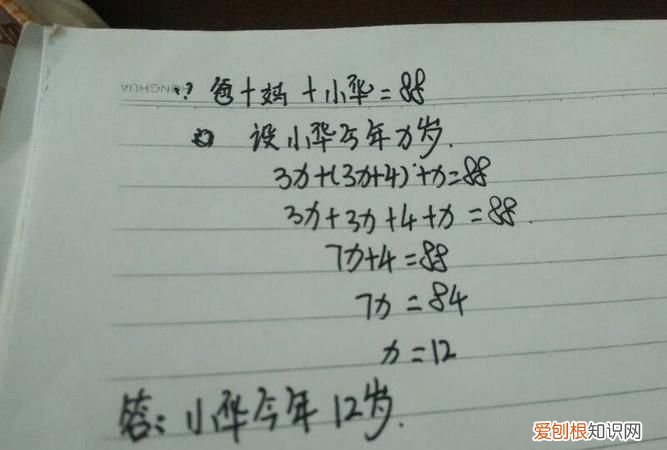 ZHONGHUA
∵ 爸+妈+小华=88
设小华今年x岁.
3x+(3x+4)+x=88
3x+3x+4+x=88.
7x+4=88
7x=84
x=12
答:小华今年12岁.
爱刨根知识网